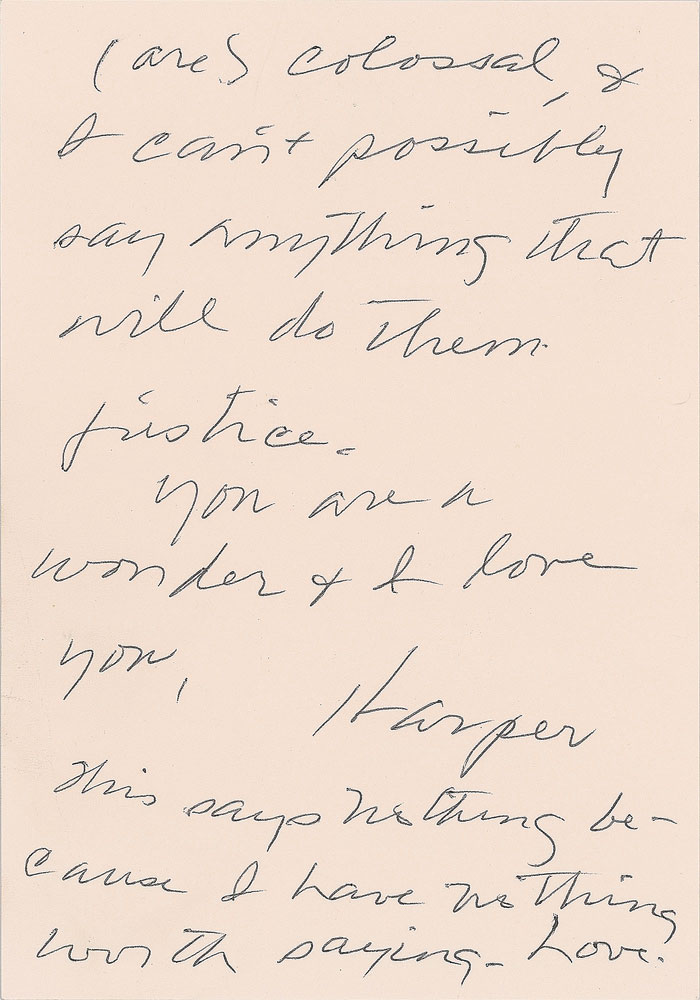 (are) colossal, &
I can't possibly
say anything that
will do them
justice.
You are a
wonder & I love
you,
Harper
This says nothing be-
cause I have nothing
worth saying - Love.